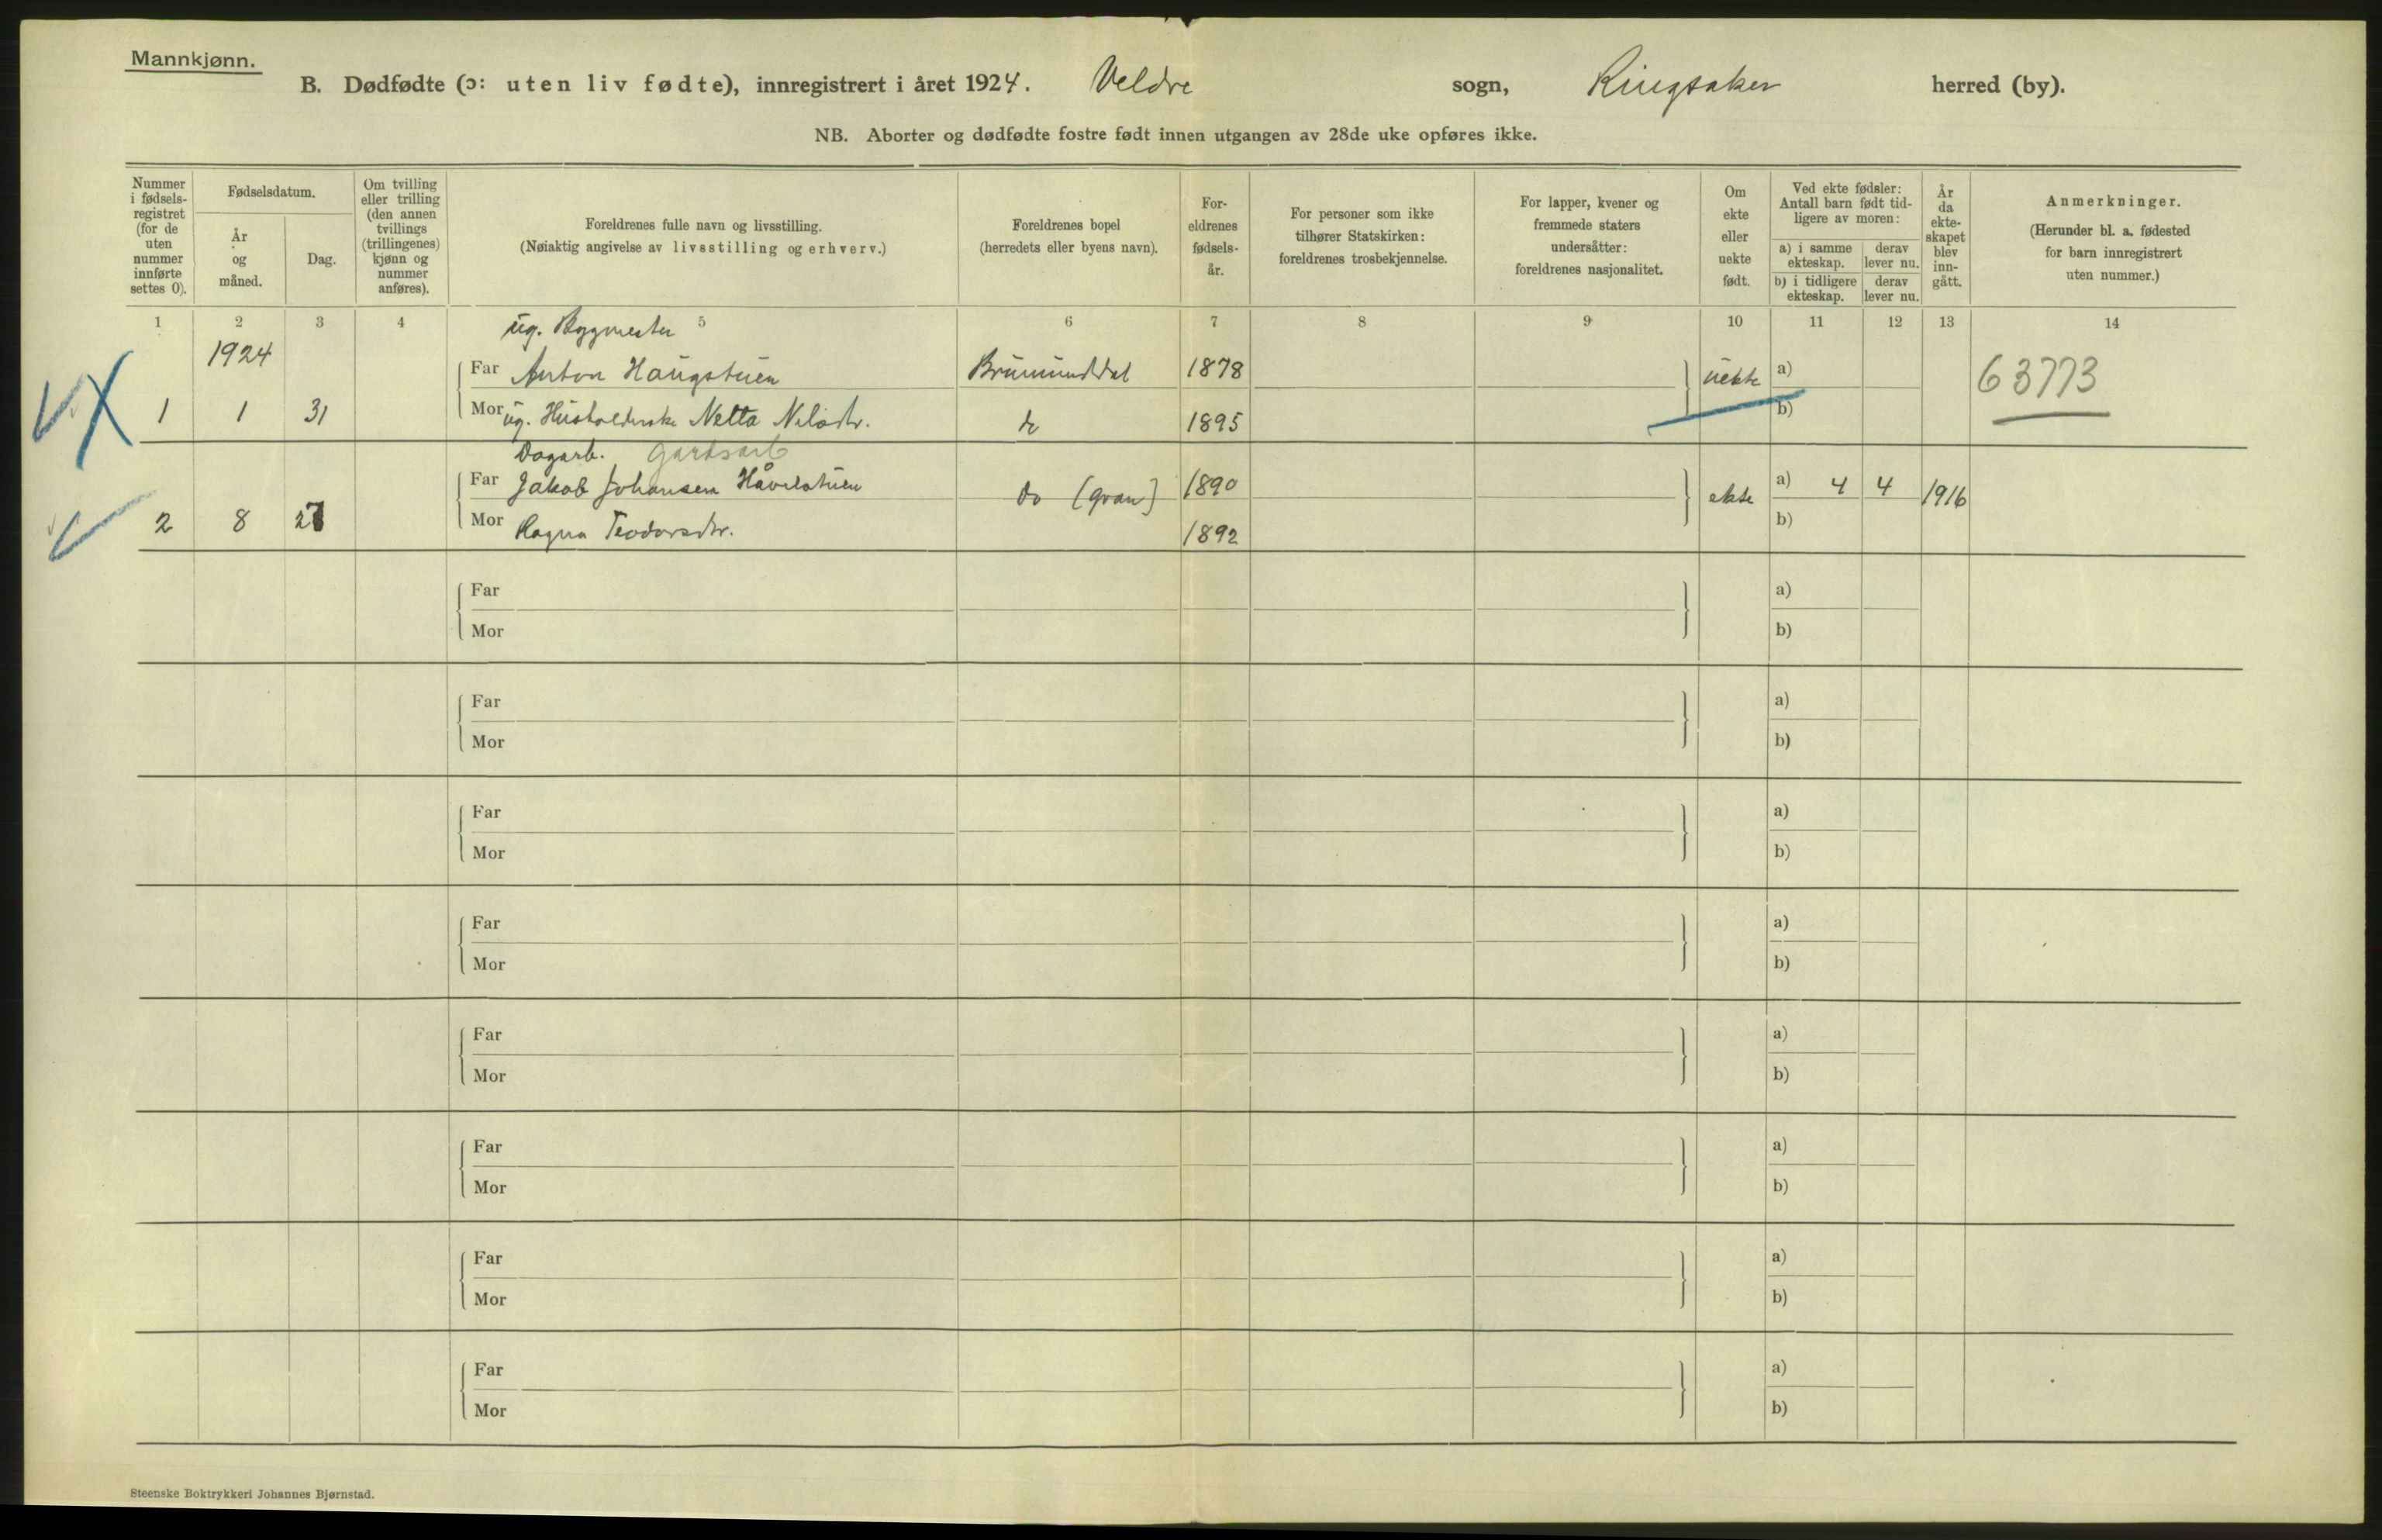 Mannkjønn.
B. Dødfødte (ɔ: uten liv fødte), innregistrert i året 1924. Veldre sogn, Ringsaker herred (by).
NB. Aborter og dødfødte fostre født innen utgangen av 28de uke opføres ikke.
Nummer i fødsels-registret (for de uten nummer innførte settes 0).
Fødselsdatum.
År og måned.
Dag.
Om tvilling eller trilling (den annen tvillings (trillingenes) kjønn og nummer anføres).
Foreldrenes fulle navn og livsstilling.
(Nøiaktig angivelse av livsstilling og erhverv.)
Foreldrenes bopel
(herredets eller byens navn).
For-eldrenes fødsels-år.
For personer som ikke tilhører Statskirken: foreldrenes trosbekjennelse.
For lapper, kvener og fremmede staters undersåtter: foreldrenes nasjonalitet.
Om ekte eller uekte født.
Ved ekte fødsler: Antall barn født tid-ligere av moren:
a) i samme ekteskap.
derav lever nu.
b) i tidligere ekteskap.
derav lever nu.
År da ekte-skapet blev inn-gått.
Anmerkninger.
(Herunder bl. a. fødested for barn innregistrert uten nummer.)
1 2 3 4 5 6 7 8 9 10 11 12 13 14
ug. Byggmester
1924
Far Anton Haugstuen Brumunddal 1878 uekte a) 63773
1 1 31 Mor ug. Husholderske Netta Nilsdtr. do 1895 b)
Dagarb. Gardsarb
Far Jakob Johansen Håvelstuen do (gran) 1890 ekte a) 4 4 1916
2 8 27 Mor Ragna Teodorsdtr. 1892 b)
Far a)
Mor b)
Far a)
Mor b)
Far a)
Mor b)
Far a)
Mor b)
Far a)
Mor b)
Far a)
Mor b)
Far a)
Mor b)
Far a)
Mor b)
Steenske Boktrykkeri Johannes Bjørnstad.